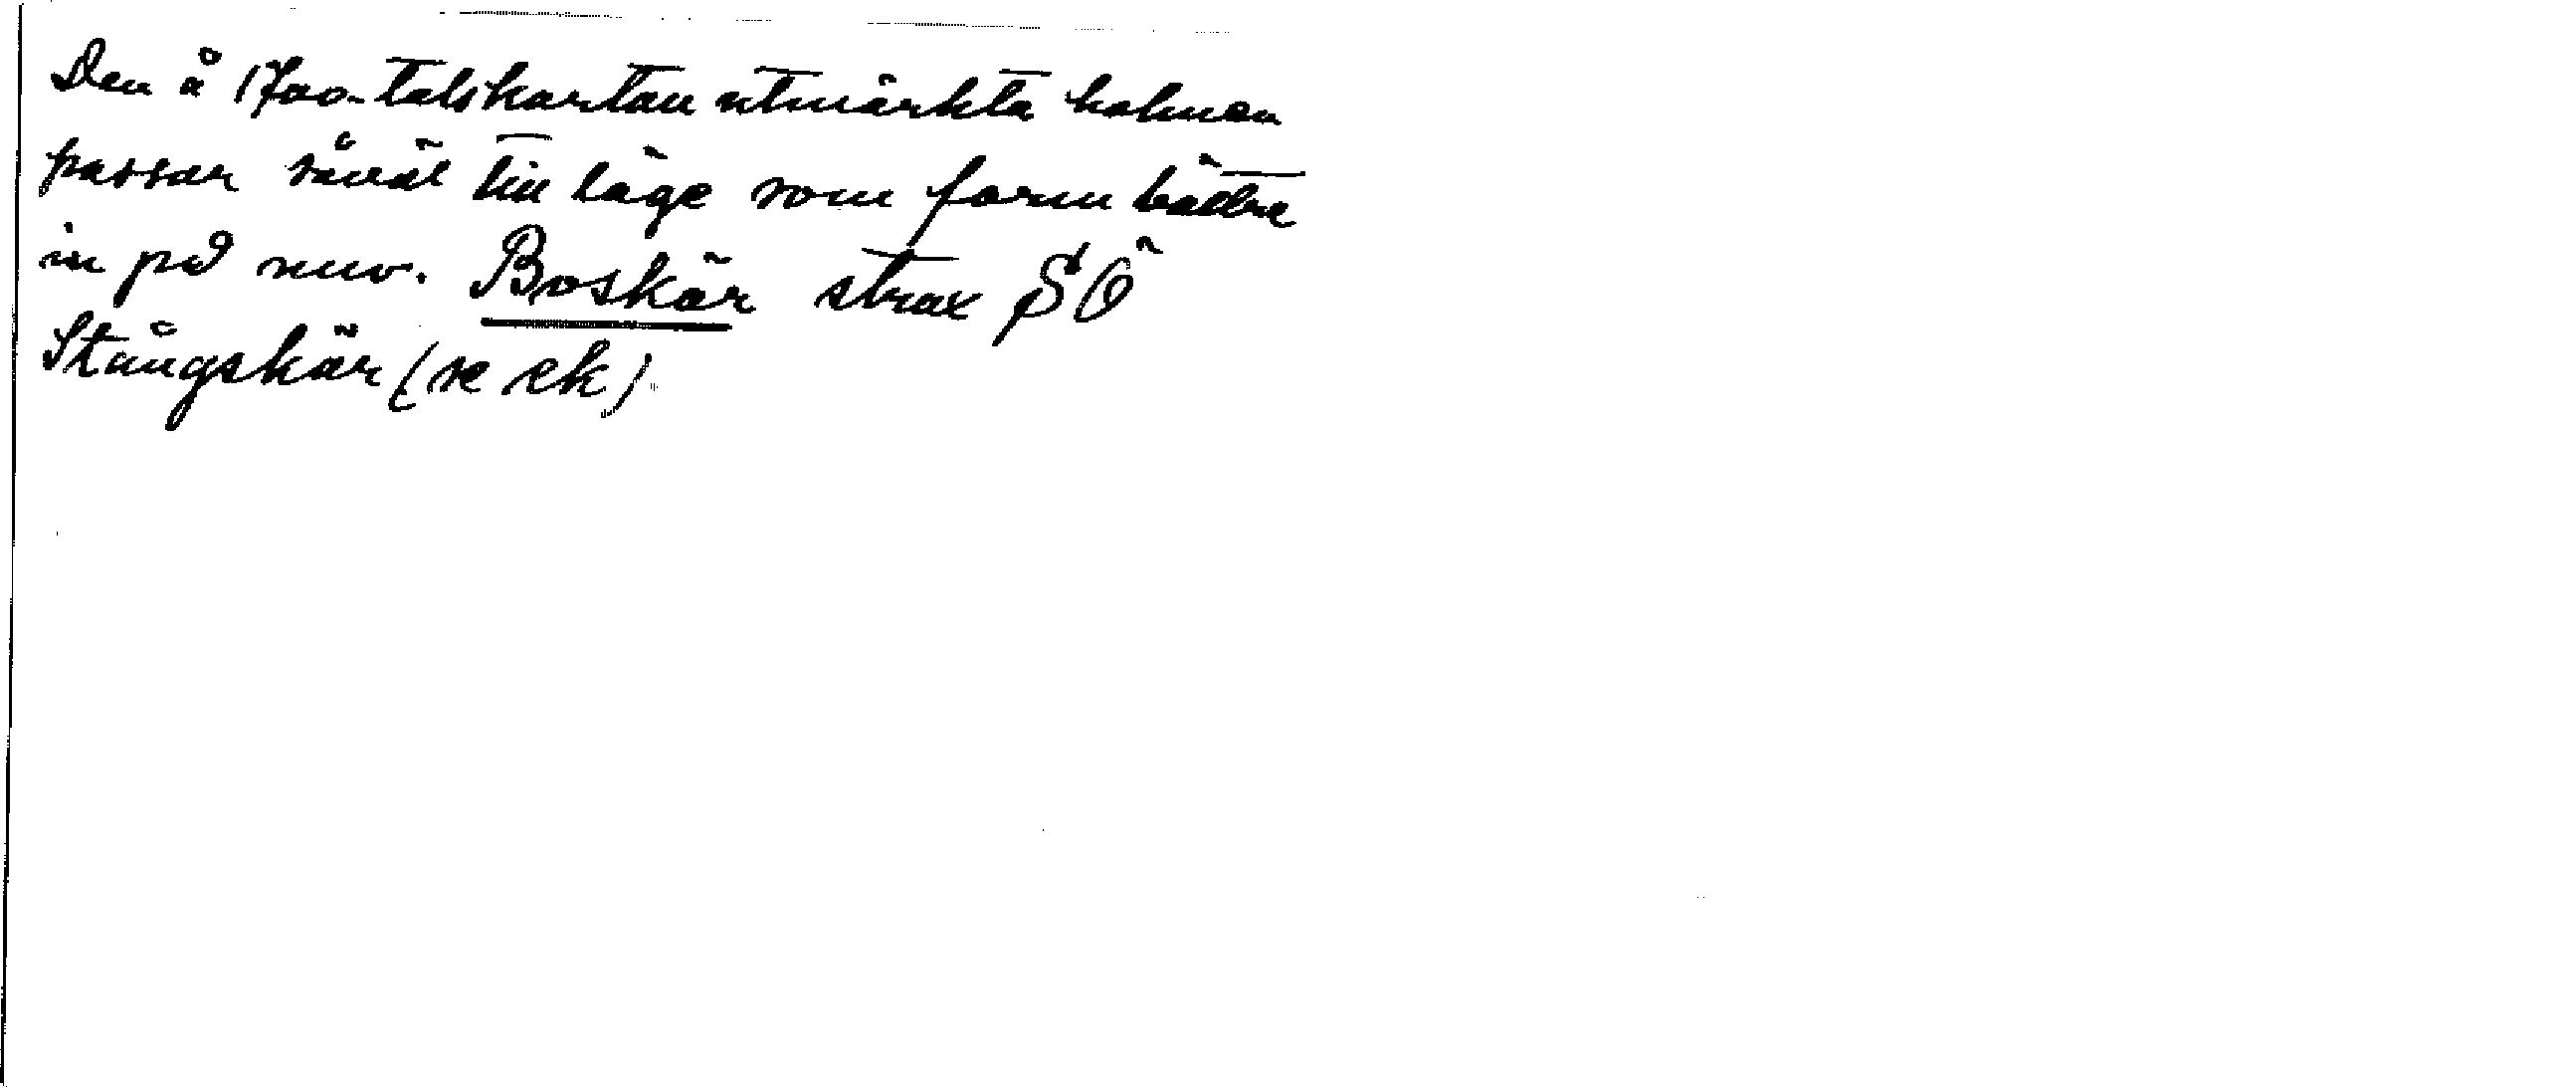 Den å 1700-talskartan utmärkta holmen
passar såväl till läge som form bättre
in på nuv. Boskär strax SÖ
Stångskär (se ek)